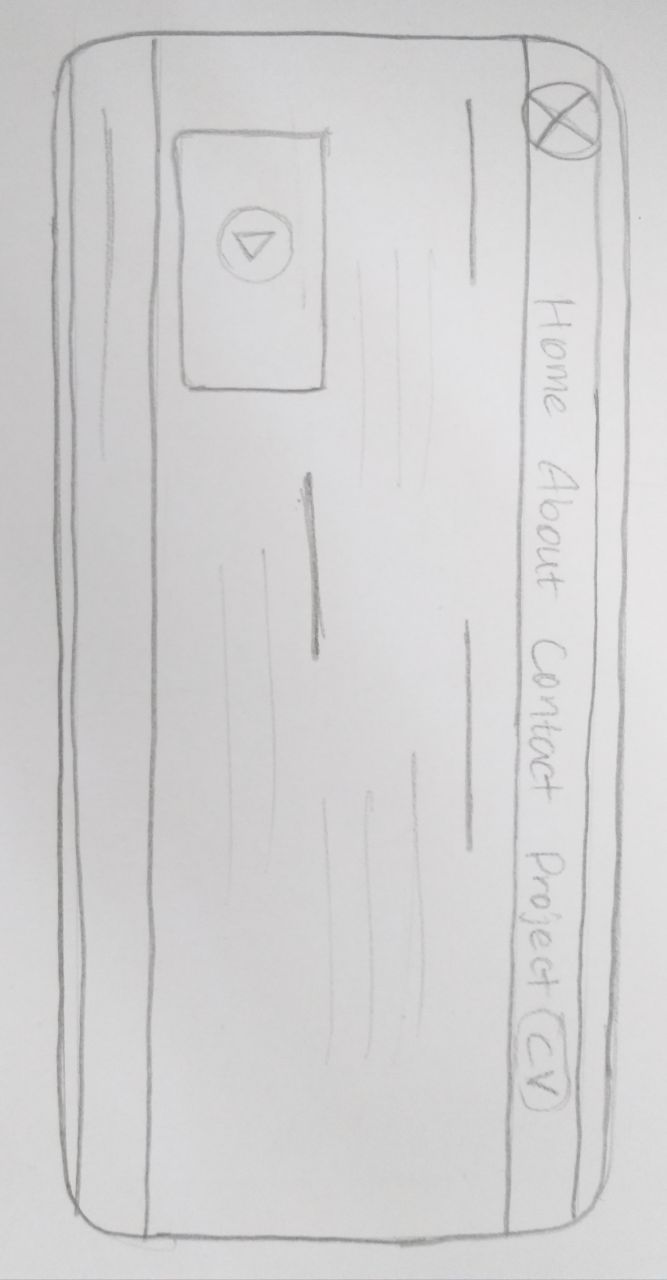 Home About Contact Project CV